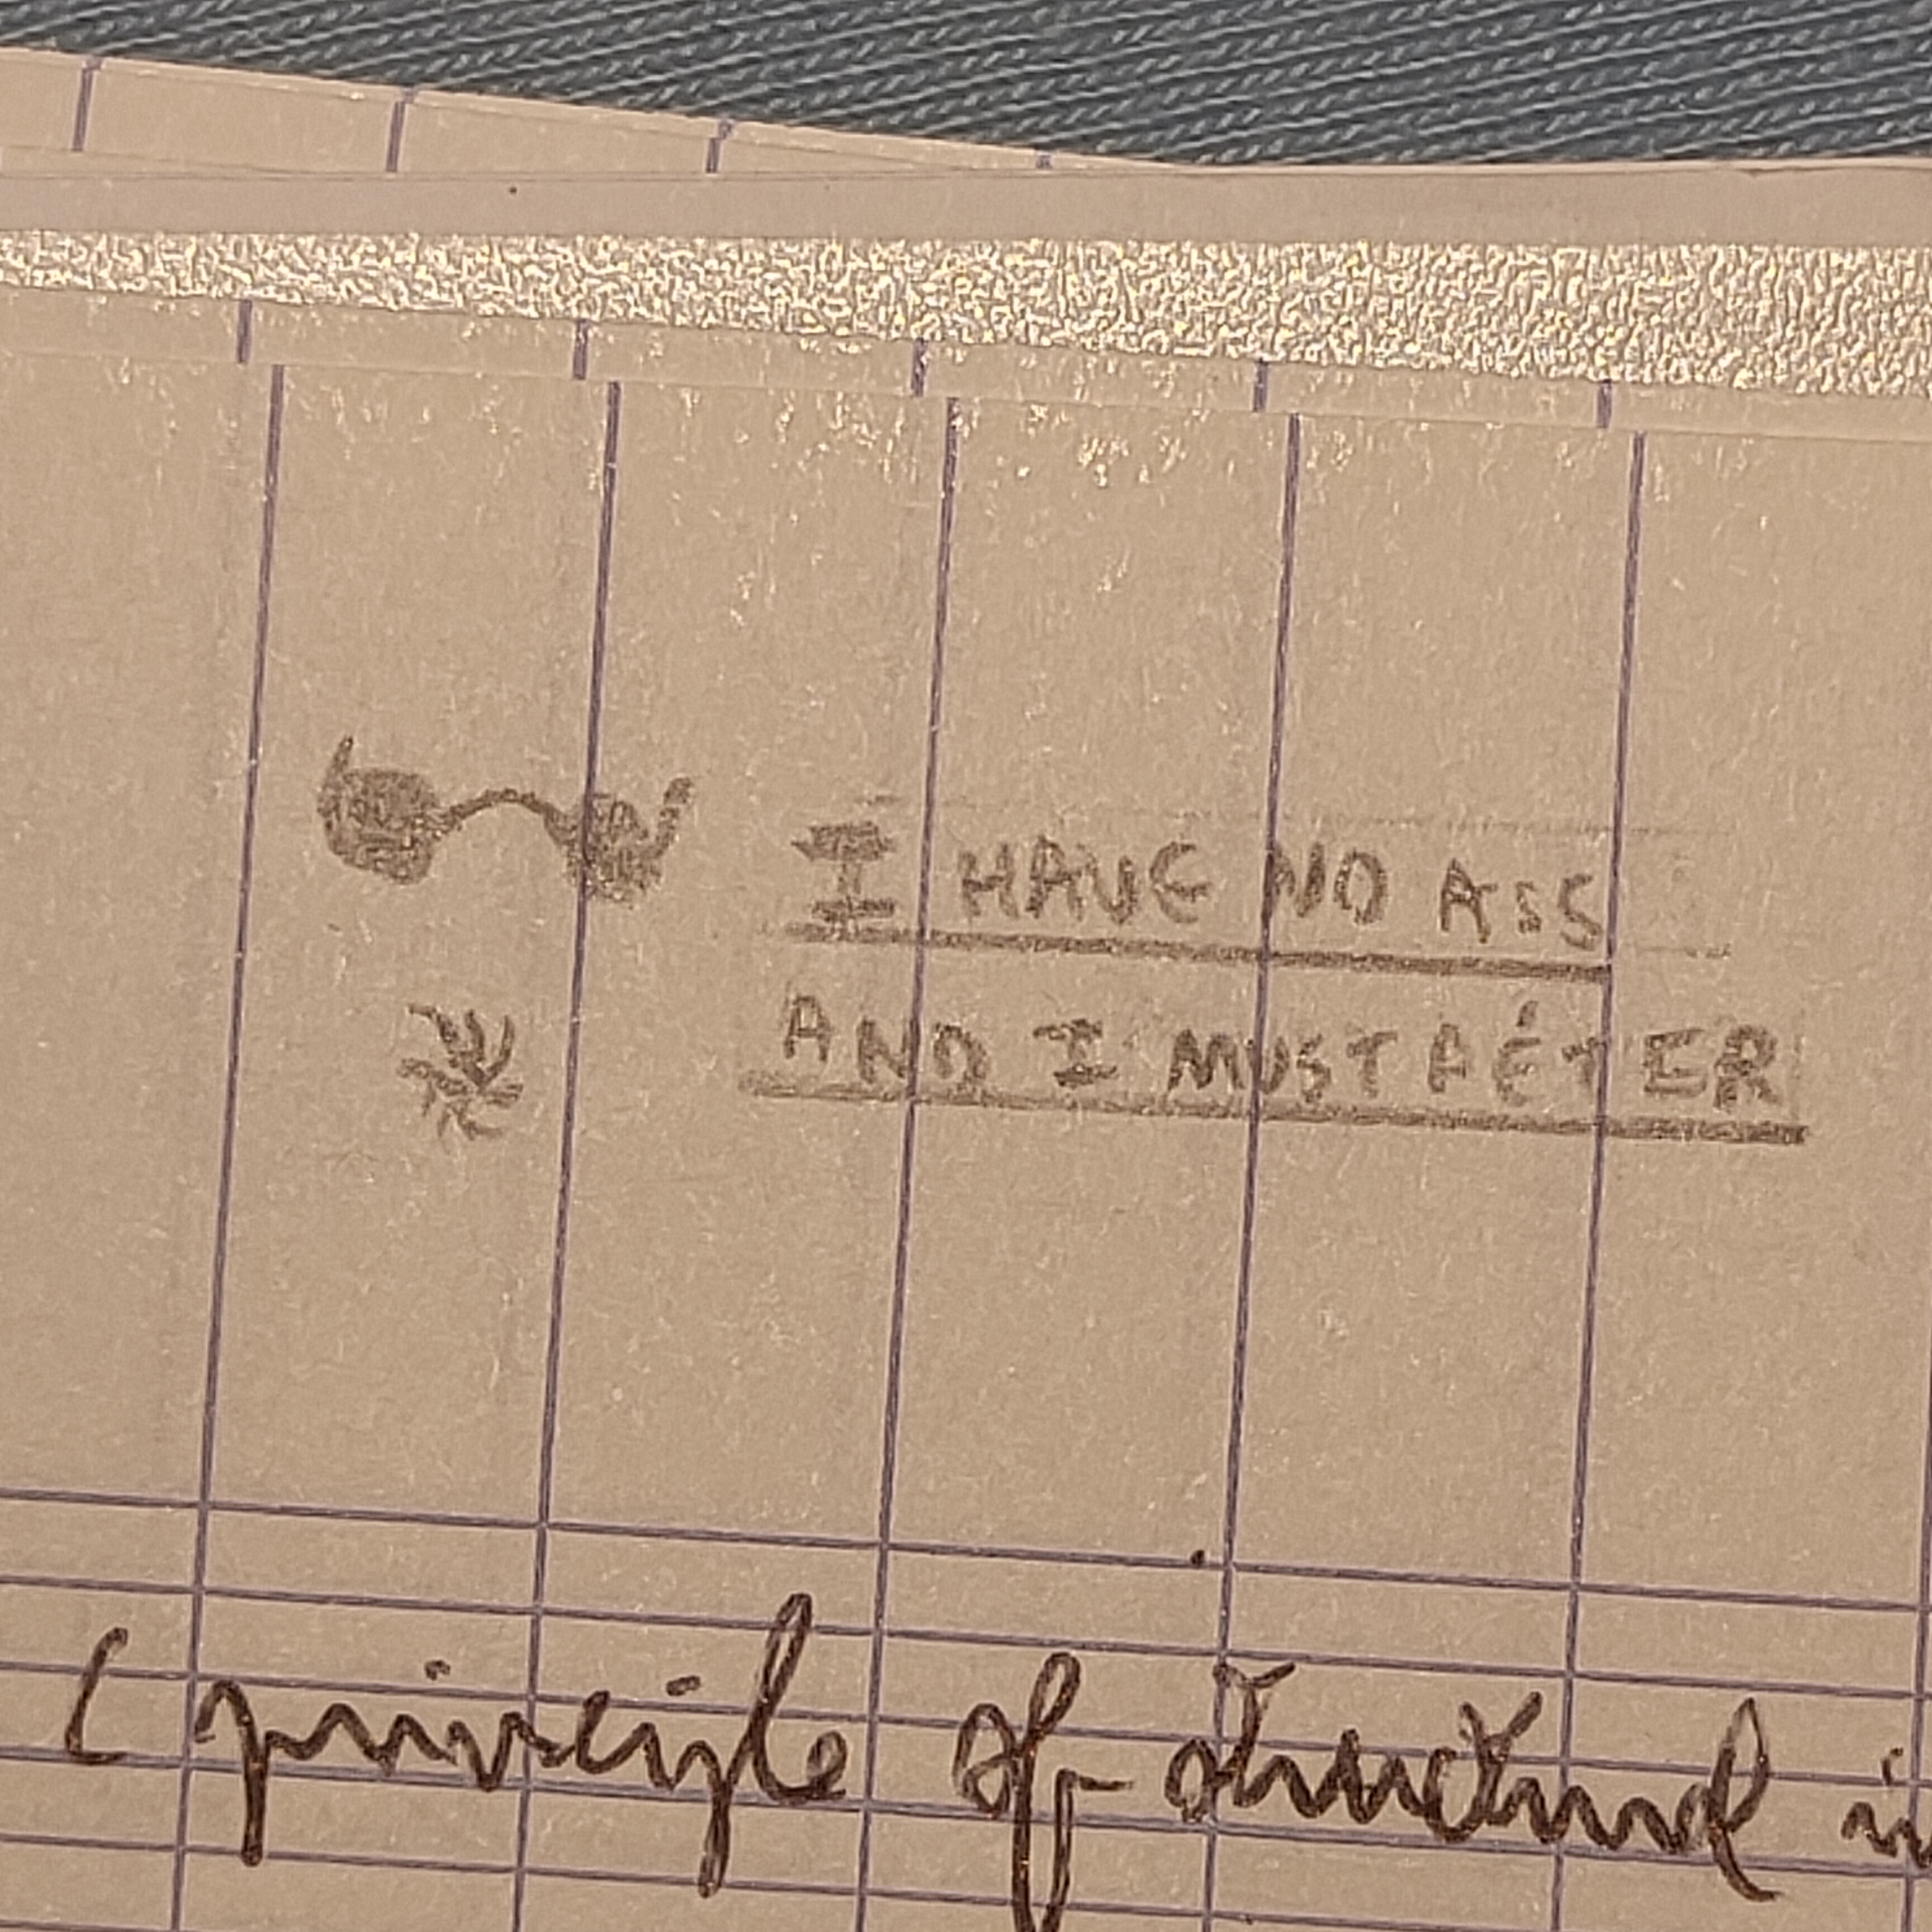 I HAVE NO ASS
AND I MUST PÉTER
(principle of structural